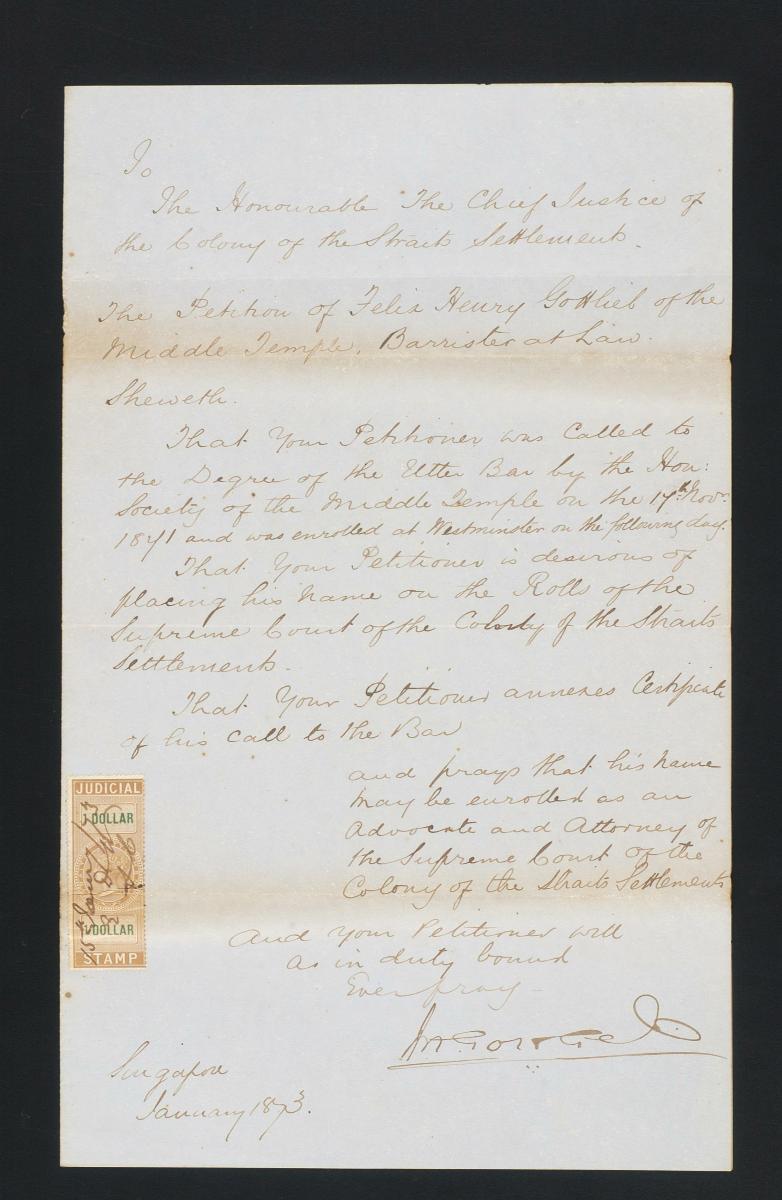 To
The Honourable The Chief Justice of
the Colony of the Straits Settlements.
The Petition of Felix Henry Gottlieb of the
Middle Temple, Barrister at Law.
Sheweth.
That Your Petitioner was called to
the Degree of the Utter Bar by the Hon:
Society of the Middle Temple on the 17th Novr
1871 and was enrolled at Westminster on the following day.
That Your Petitioner is desirous of
placing his name on the Rolls of the
Supreme Court of the Colony of the Straits
Settlements.
That Your Petitioner annexes Certificate
of his call to the Bar
and prays that his name
may be enrolled as an
Advocate and Attorney of
the Supreme Court of the
Colony of the Straits Settlements
JUDICIAL
1 DOLLAR
15th Jany /73
1 DOLLAR
STAMP
And Your Petitioner will
as in duty bound
Ever pray -
Gottlieb
Singapore
January 1873.